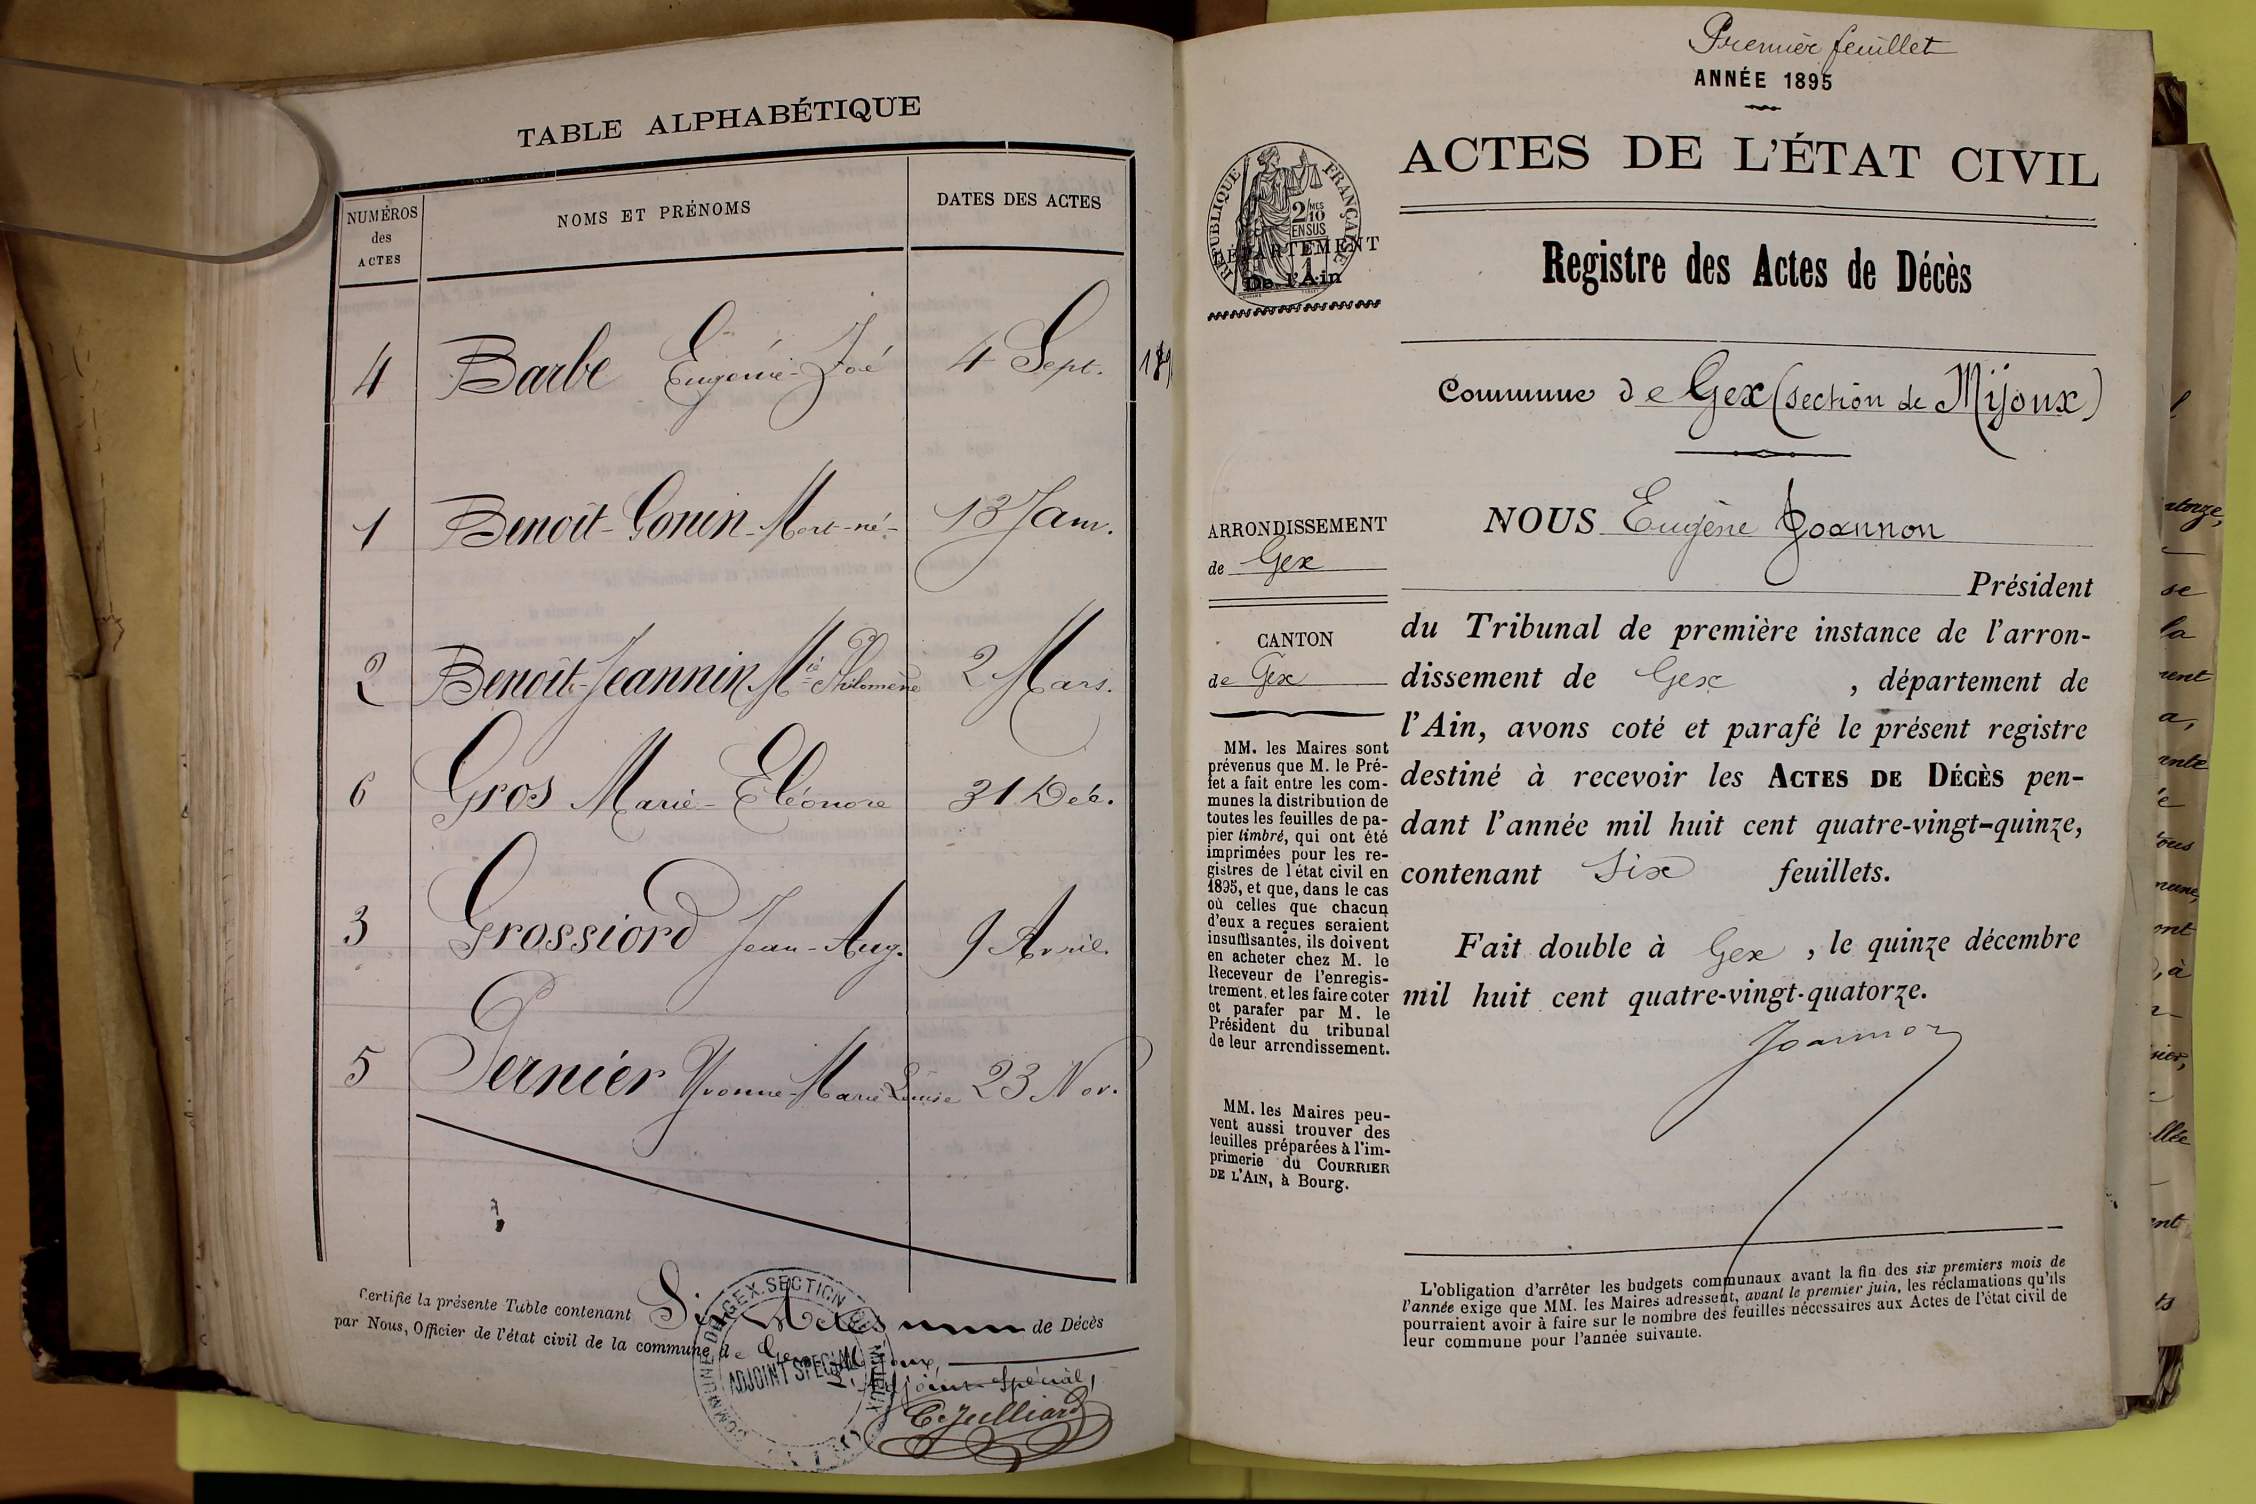 TABLE ALPHABÉTIQUE
NUMÉROS
des
ACTES
NOMS ET PRÉNOMS
DATES DES ACTES
4 Barbe Eugénie-Zoé 4 Sept. 189
1 Benoît-Gonin-Mort-né- 13 Janv.
2 Benoît-Jeannin Mie Philomène 2 Mars.
6 Gros Marie-Eléonore 31 Déc.
3 Grossiord Jean-Aug. 9 Avril.
5 Pernier Yvonne-Marie Louise 23 Nov.
Certifié la présente Table contenant Six Actes de Décès
par Nous, Officier de l'état civil de la commune de Gex-Mijoux,
L'Adjoint Spécial,
E. Julliard
COMMUNE DE GEX. SECTION DE MIJOUX
ADJOINT SPÉCIAL
Premier feuillet
ANNÉE 1895
ACTES DE L'ÉTAT CIVIL
RÉPUBLIQUE FRANÇAISE
2/10 MES
EN SUS
DÉPARTEMENT
De l'Ain
Registre des Actes de Décès
Commune de Gex (section de Mijoux)
ARRONDISSEMENT
de Gex
CANTON
de Gex
MM. les Maires sont
prévenus que M. le Pré-
fet a fait entre les com-
munes la distribution de
toutes les feuilles de pa-
pier timbré, qui ont été
imprimées pour les re-
gistres de l'état civil en
1895, et que, dans le cas
où celles que chacun
d'eux a reçues seraient
insuffisantes, ils doivent
en acheter chez M. le
Receveur de l'enregis-
trement, et les faire coter
et parafer par M. le
Président du tribunal
de leur arrondissement.
MM. les Maires peu-
vent aussi trouver des
feuilles préparées à l'im-
primerie du COURRIER
DE L'AIN, à Bourg.
NOUS Eugène Joannon
Président
du Tribunal de première instance de l'arron-
dissement de Gex , département de
l'Ain, avons coté et parafé le présent registre
destiné à recevoir les ACTES DE DÉCÈS pen-
dant l'année mil huit cent quatre-vingt-quinze,
contenant six feuillets.
Fait double à Gex , le quinze décembre
mil huit cent quatre-vingt-quatorze.
Joannon
L'obligation d'arrêter les budgets communaux avant la fin des six premiers mois de
l'année exige que MM. les Maires adressent, avant le premier juin, les réclamations qu'ils
pourraient avoir à faire sur le nombre des feuilles nécessaires aux Actes de l'état civil de
leur commune pour l'année suivante.